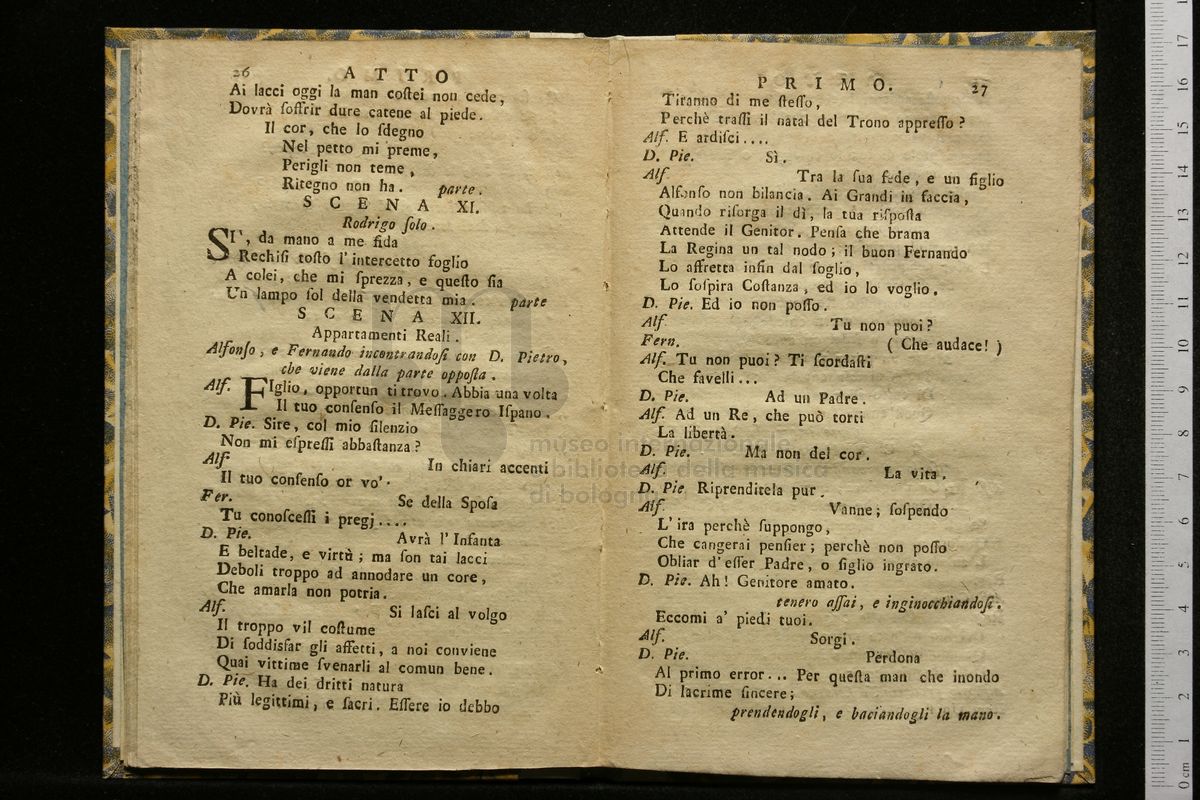 26
A T T O
Ai lacci oggi la man coſtei non cede,
Dovrà ſoffrir dure catene al piede.
Il cor, che lo ſdegno
Nel petto mi preme,
Perigli non teme,
Ritegno non ha. parte.
S C E N A XI.
Rodrigo ſolo.
SI', da mano a me fida
Rechiſi toſto l'intercetto foglio
A colei, che mi ſprezza, e queſto ſia
Un lampo ſol della vendetta mia. parte
S C E N A XII.
Appartamenti Reali.
Alfonſo, e Fernando incontrandoſi con D. Pietro,
che viene dalla parte oppoſta.
Alf. FIglio, opportun ti trovo. Abbia una volta
Il tuo conſenſo il Meſſaggero Iſpano.
D. Pie. Sire, col mio ſilenzio
Non mi eſpreſſi abbaſtanza?
Alf. In chiari accenti
Il tuo conſenſo or vo'.
Fer. Se della Spoſa
Tu conoſceſſi i pregj....
D. Pie. Avrà l'Infanta
E beltade, e virtù; ma ſon tai lacci
Deboli troppo ad annodare un core,
Che amarla non potria.
Alf. Si laſci al volgo
Il troppo vil coſtume
Di ſoddisfar gli affetti, a noi conviene
Quai vittime ſvenarli al comun bene.
D. Pie. Ha dei dritti natura
Più legittimi, e ſacri. Eſſere io debbo
P R I M O.
27
Tiranno di me ſteſſo,
Perchè traſſi il natal del Trono appreſſo?
Alf. E ardiſci....
D. Pie. Sì.
Alf. Tra la ſua fede, e un figlio
Alfonſo non bilancia. Ai Grandi in faccia,
Quando riſorga il dì, la tua riſpoſta
Attende il Genitor. Penſa che brama
La Regina un tal nodo; il buon Fernando
Lo affretta infin dal ſoglio,
Lo ſoſpira Coſtanza, ed io lo voglio.
D. Pie. Ed io non poſſo.
Alf. Tu non puoi?
Fern. (Che audace!)
Alf. Tu non puoi? Ti ſcordaſti
Che favelli...
D. Pie. Ad un Padre.
Alf. Ad un Re, che può torti
La libertà.
D. Pie. Ma non del cor.
Alf. La vita.
D. Pie. Riprenditela pur.
Alf. Vanne; ſoſpendo
L'ira perchè ſuppongo,
Che cangerai penſier; perchè non poſſo
Obliar d'eſſer Padre, o figlio ingrato.
D. Pie. Ah! Genitore amato.
tenero aſſai, e inginocchiandoſi.
Eccomi a' piedi tuoi.
Alf. Sorgi.
D. Pie. Perdona
Al primo error... Per queſta man che inondo
Di lacrime ſincere;
prendendogli, e baciandogli la mano.
museo internazionale
e biblioteca della musica
di bologna
0 cm 1 2 3 4 5 6 7 8 9 10 11 12 13 14 15 16 17